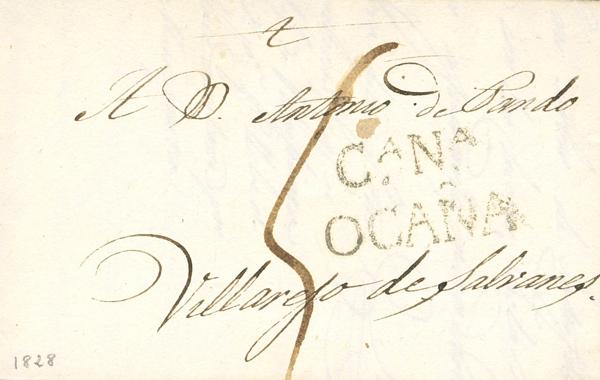 A D. Antonio de Pando
C.ª N.ª
OCAÑA
Villarejo de Salvanes.
1828